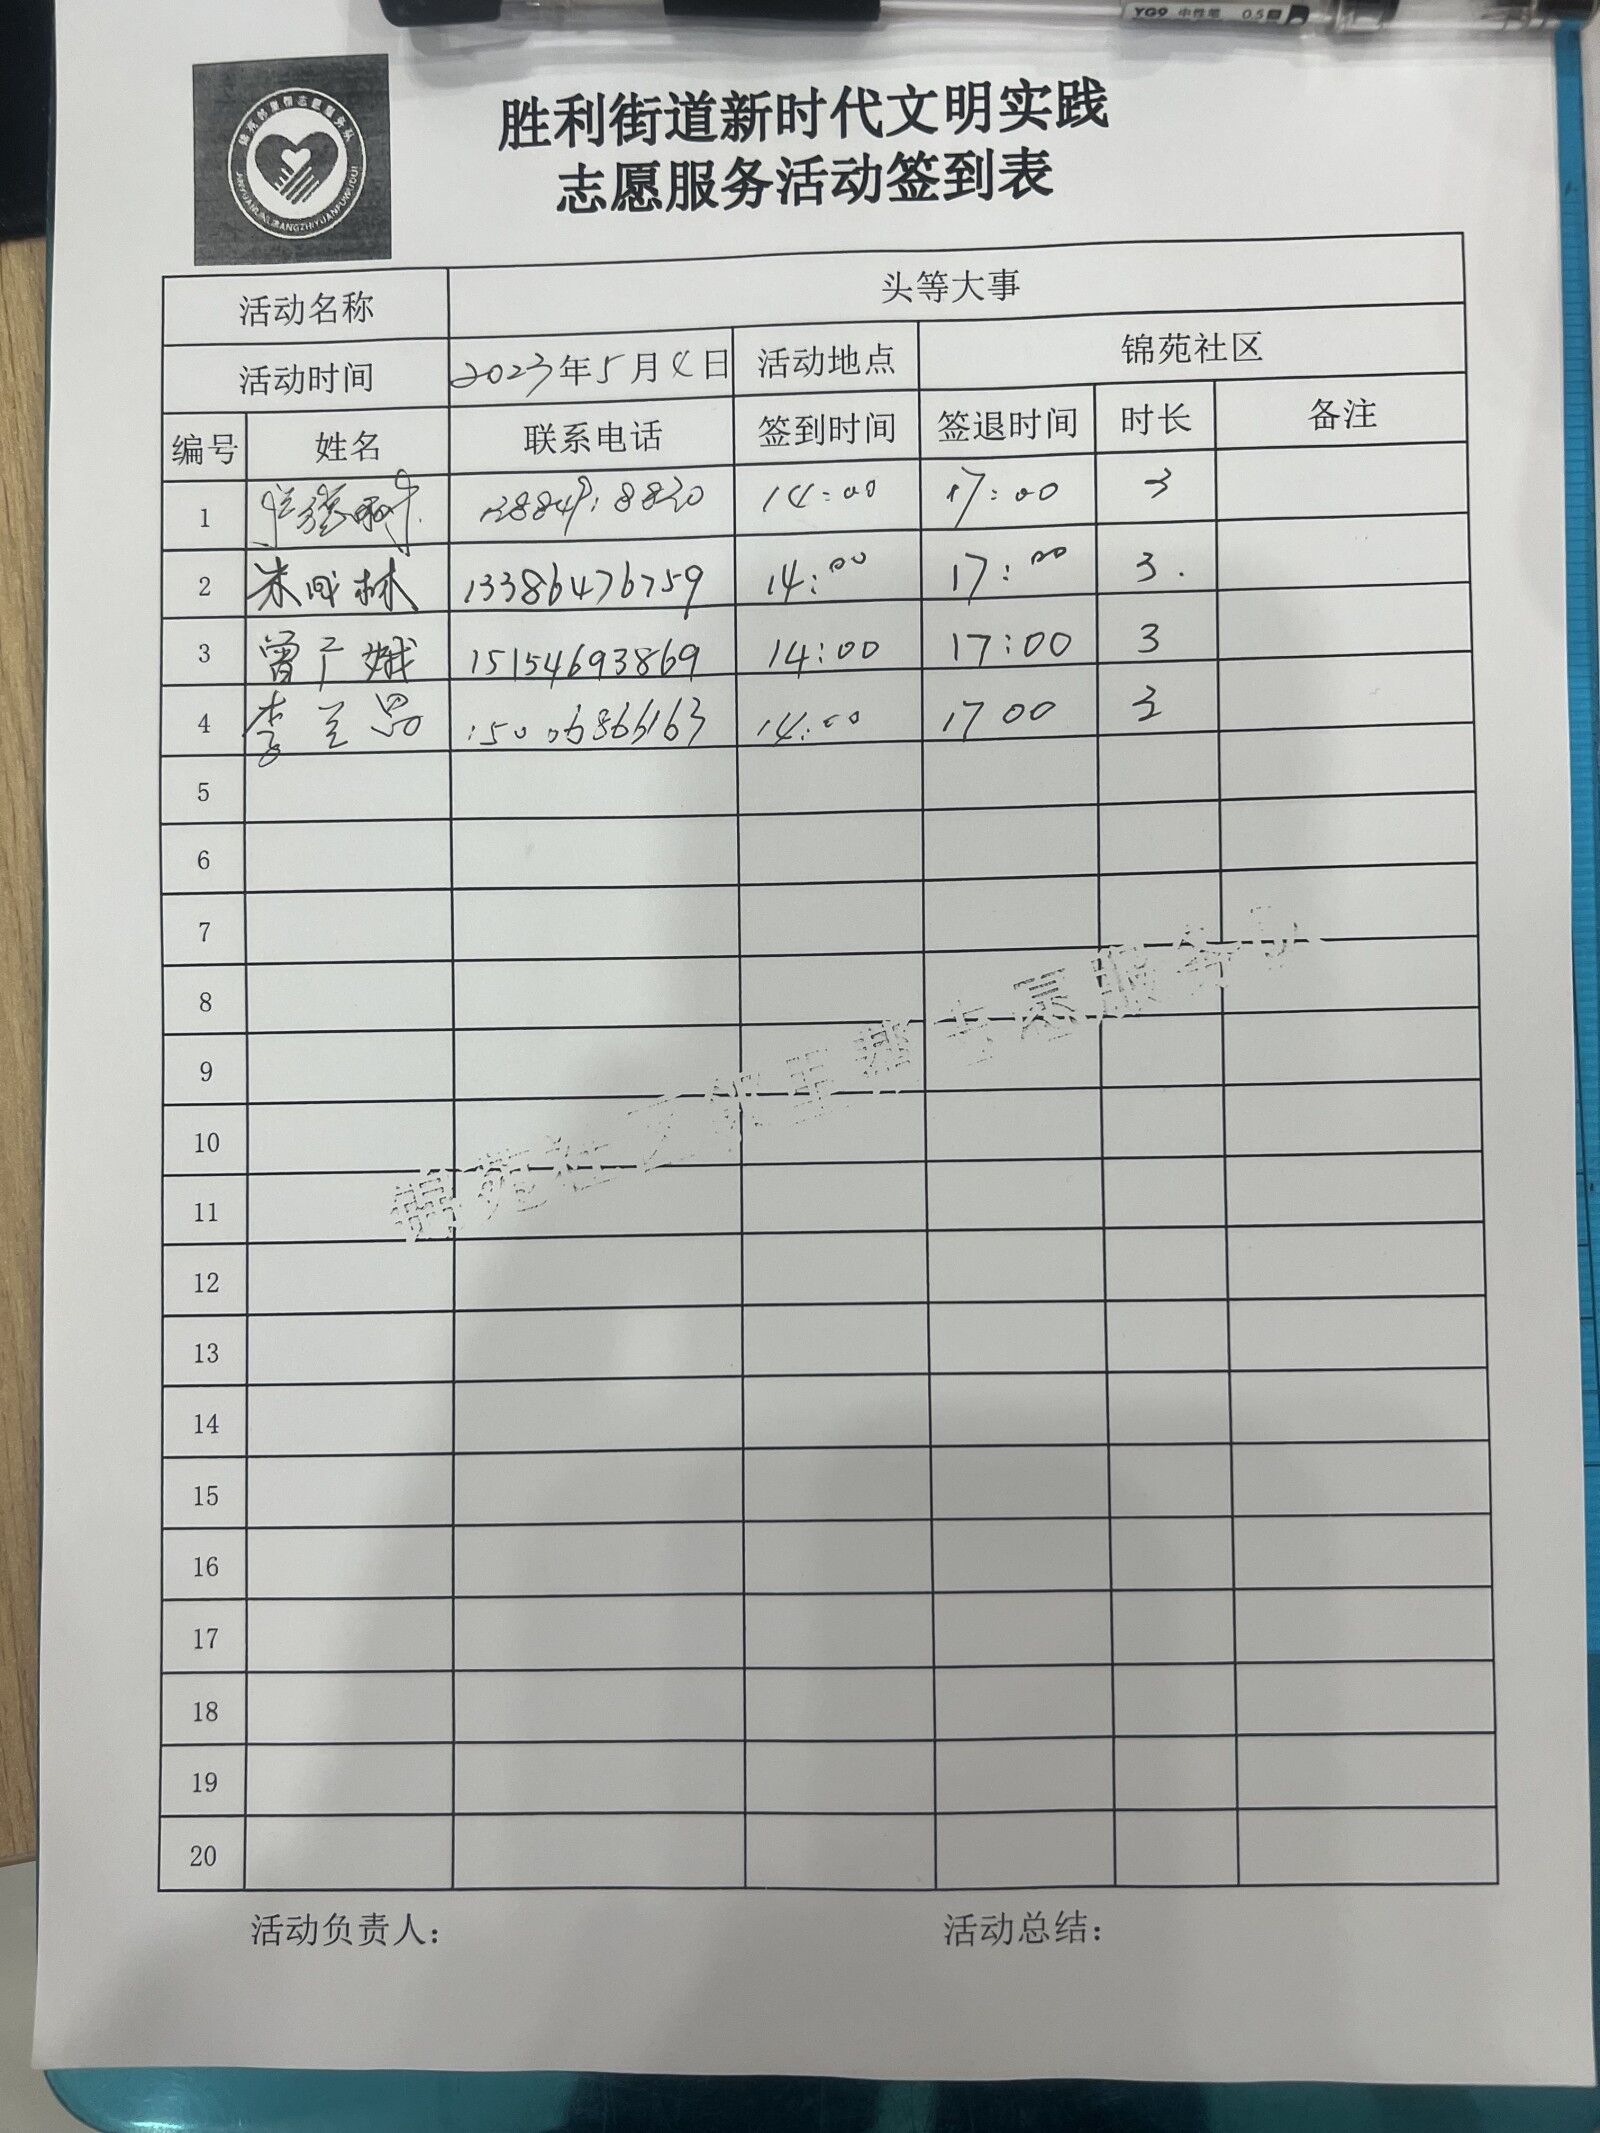 YG9 中性笔 0.5
胜利街道新时代文明实践
志愿服务活动签到表
活动名称 头等大事
活动时间 2023年5月4日 活动地点 锦苑社区
编号 姓名 联系电话 签到时间 签退时间 时长 备注
1 14:00 17:00 3
2 朱成林 13386476759 14:00 17:00 3.
3 曾广娥 15154693869 14:00 17:00 3
4 李兰 15006866163 14:00 17 00 3
5
6
7
8
9
10
11
12
13
14
15
16
17
18
19
20
锦苑社区 志愿服务队
活动负责人： 活动总结：